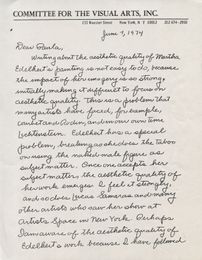 COMMITTEE FOR THE VISUAL ARTS, INC.
155 Wooster Street New York, N Y 10012 212 674-
June 7, 1974
Dear Gerta,
Writing about the aesthetic quality of Martha
Edelheit's painting is not easy to do, because
the impact of her imagery is so strong,
initially making it difficult to focus on
aesthetic quality. This is a problem that
many artists have faced, for example,
Courbet and Rodin, and in our own time
Lichtenstein. Edelheit has a special
problem, breaking as she does the taboo
on using the naked male figure as
subject matter. Once one accepts her
subject matter, the aesthetic quality of
her work emerges. I feel it strongly,
and so does Lucas Samaras and many
other artists who saw her show at
Artists Space in New York. Perhaps
I am aware of the aesthetic quality of
Edelheit's work because I have followed